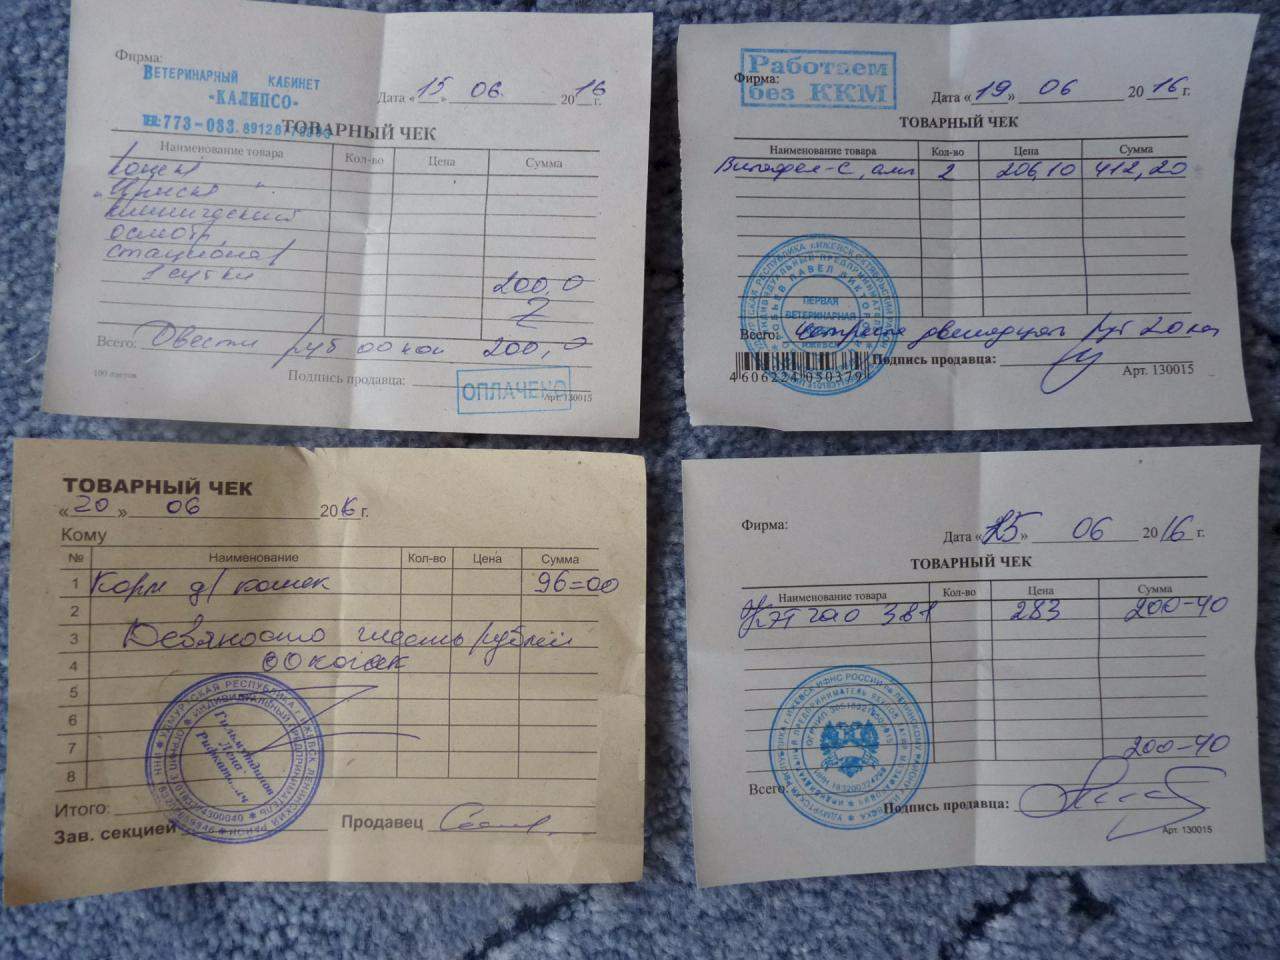 Фирма:
ВЕТЕРИНАРНЫЙ КАБИНЕТ
«КАЛИПСО»
Дата «15» 06. 2016 г.
ТЕЛ: 773-083.
ТОВАРНЫЙ ЧЕК
Наименование товара Кол-во Цена Сумма
клинический
осмотр,
стационар
1 сутки
200,0
Z
Всего: Двести руб 00 коп 200,0
100 листов
Подпись продавца:
ОПЛАЧЕНО
Арт. 130015
Работаем
без ККМ
Фирма:
Дата «19» 06 2016 г.
ТОВАРНЫЙ ЧЕК
Наименование товара Кол-во Цена Сумма
2 206,10 412,20
ПЕРВАЯ
ВЕТЕРИНАРНАЯ
ИЖЕВСК
Всего: Четыреста двенадцать руб 20 коп
Подпись продавца:
4 606224 050379
Арт. 130015
ТОВАРНЫЙ ЧЕК
«20» 06 2016 г.
Кому
№ Наименование Кол-во Цена Сумма
1 Корм д/кошек 96=00
2
3 Девяносто шесть рублей
4 00 копеек
5
6
7
8
УДМУРТСКАЯ РЕСПУБЛИКА Г. ИЖЕВСК ЛЕНИНСКИЙ РАЙОН
ИНДИВИДУАЛЬНЫЙ ПРЕДПРИНИМАТЕЛЬ
Итого:
Зав. секцией Продавец
Фирма:
Дата «25» 06 2016 г.
ТОВАРНЫЙ ЧЕК
Наименование товара Кол-во Цена Сумма
283 200-40
200-40
Всего:
Подпись продавца:
Арт. 130015